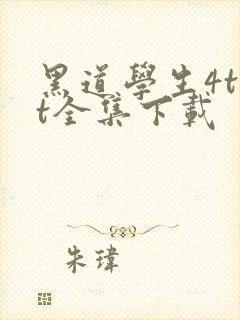 黑道學生4t
t全集下載
朱瑋